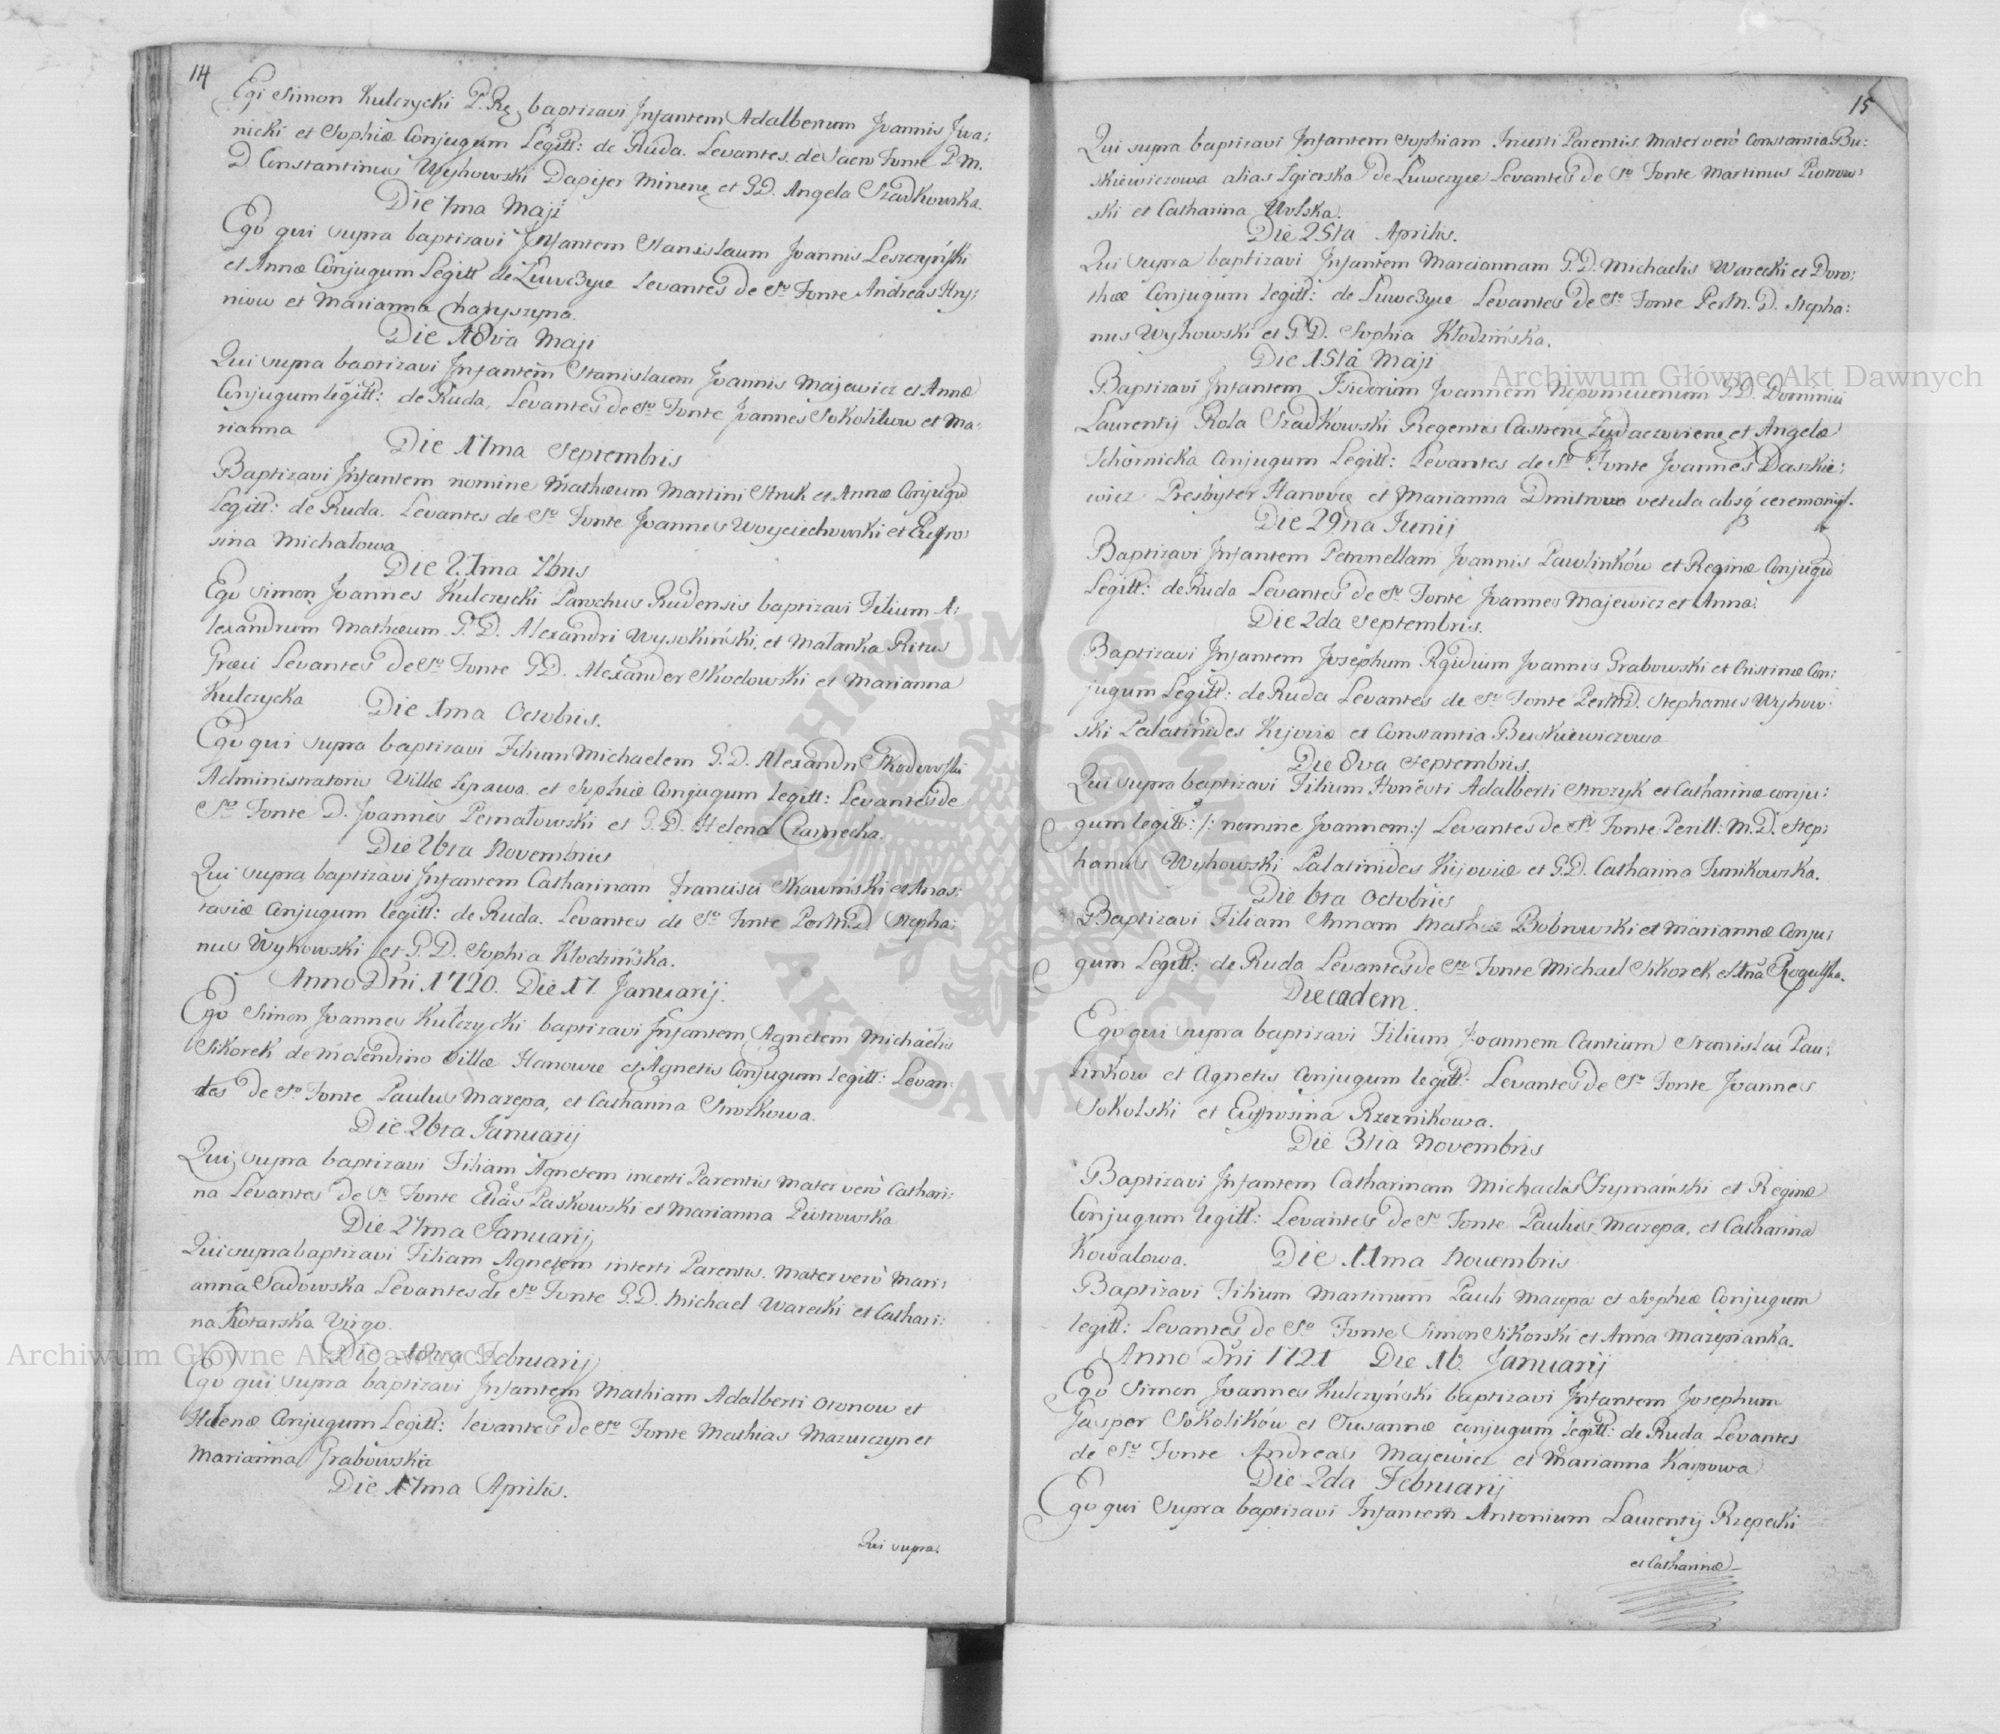 14
Ego Simon Kulczycki P. Rę baptizavi Infantem Adalbertum Joannis Iwa:
nicki et Sophiæ Conjugum Legitt: de Ruda. Levantes de Sacro Fonte P. M.
D Constantinus Wyhowski Dapifer Minenę et G.D. Angela Szadkowska.
Die 7ma Maji
Ego qui supra baptizavi Infantem Stanislaum Joannis Leszczyński
et Annæ Conjugum Legitt de Luwczyce Levantes de S͞o Fonte Andreas Hry:
niow et Marianna Charyszyna.
Die 18va Maji
Qui supra baptizavi Infantem Stanislaum Joannis Majewicz et Annæ
Conjugum legitt: de Ruda, Levantes de S͞o Fonte Joannes Sokolikow et Ma:
rianna
Die 17ma Septembris
Baptizavi Infantem nomine Mathæum Martini Struk et Annæ Conjugũ
Legitt: de Ruda. Levantes de S͞o Fonte Joannes Woyciechowski et Eufro
sina Michalowa
Die 21ma 7bris
Ego Simon Joannes Kulczycki Parochus Rudensis baptizavi Filium A:
lexandrum Mathæum G.D. Alexandri Wysokiński, et Małanka Ritus
Græci Levantes de S͞o Fonte G.D. Alexander Skodowski et Marianna
Kulczycka
Die 1ma Octobris.
Ego qui supra baptizavi Filium Michaelem G.D. Alexandri Skodowski
Administratoris Villæ Lipawa et Sophiæ Conjugum legitt: Levantes de
S͞o Fonte D. Joannes Pernatowski et G.D. Helena Czarnecka.
Die 26ta Novembris
Qui supra baptizavi Infantem Catharinam Francisci Skawiński et Anas:
tasiæ Conjugum legitt: de Ruda. Levantes de S͞o Fonte PerM.D Stepha:
nus Wykowski et G.D. Sophia Kłodzińska.
Anno Dñi 1720. Die 17 Januarij.
Ego Simon Joannes Kulczycki baptizavi Infantem Agnetem Michaelis
Sikorek de molendino Villæ Hanowce et Agnetis Conjugum legitt: Levan:
tes de S͞o Fonte Paulus Mazepa, et Catharina Strozkowa.
Die 26ta Januarij
Qui supra baptizavi Filiam Agnetem incerti Parentis Mater verò Cathari:
na Levantes de S͞o Fonte Elias Paskowski et Marianna Piotrowska
Die 27ma Januarij
Qui supra baptizavi Filiam Agnetem interti Parentis. Mater verò Mari:
anna Sadowska Levantes de S͞o Fonte G.D. Michael Warecki et Cathari:
na Kotarska Virgo.
Die 18va Februarij
Ego qui supra baptizavi Infantem Mathiam Adalberti Oronow et
Helenæ Conjugum Legitt: levantes de S͞o Fonte Mathias Mazurczyn et
Marianna Grabowska
Die 17ma Aprilis.
Qui supra.
15
Qui supra baptizavi Infantem Sophiam Incerti Parentis Mater verò Constantia Bu:
skiewiczowa alias Zgierska de Luwczyce Levantes de S͞o Fonte Martinus Piotrow:
ski et Catharina Wolska.
Die 25ta Aprilis.
Qui supra baptizavi Infantem Mariannam G.D. Michaelis Warecki et Doro:
theæ Conjugum legitt: de Luwczyce Levantes de S͞o Fonte PerM. D. Stepha:
nus Wyhowski et G.D. Sophia Kłodzińska.
Die 15ta Maji
Baptizavi Infantem Isidorum Joannem Nepomucenum G.D. Dominici
Laurentij Rola Szadkowski Regentis Castrenę Żydaczoviene et Angelæ
Schornicka Conjugum Legitt: Levantes de S͞o Fonte Joannes Daszkie:
wicz Presbyter Hanovię et Marianna Dmitrowa vetula absq̃ ceremonijs.
Die 29na Iunij
Baptizavi Infantem Petronellam Joannis Pawlinków et Reginæ Conjugũ
Legitt: de Ruda Levantes de S͞o Fonte Joannes Majewicz et Anna.
Die 2da Septembris.
Baptizavi Infantem Josephum Ægidium Joannis Grabowski et Cristinæ Con:
jugum Legitt: de Ruda Levantes de S͞o Fonte PerMD. Stephanus Wyhow:
ski Palatinides Kijoviæ et Constantia Buskiewiczowa
Die 8va Septembris.
Qui supra baptizavi Filium Honesti Adalberti Strozyk et Catharinæ conju:
gum legitt: /: nomine Joannem:/ Levantes de S͞o Fonte Perill: M.D. Step:
hanus Wyhowski Palatinides Kijoviæ et G.D. Catharina Tunikowska.
Die 6ta Octobris
Baptizavi Filiam Annam Mathiæ Bobrowski et Mariannæ Conju:
gum Legitt: de Ruda Levantes de S͞o Fonte Michael Sikorek et Añã Rogulska.
Die eadem.
Ego qui supra baptizavi Filium Joannem Cantium Stanislai Pau:
linkow et Agnetis Conjugum legitt: Levantes de S͞o Fonte Joannes
Sokolski et Eufrosina Rzeznikowa.
Die 3tia Novembris
Baptizavi Infantem Catharinam Michaelis Szymański et Reginæ
Conjugum legitt: Levantes de S͞o Fonte Paulus Mazepa, et Catharina
Kowalowa.
Die 11ma Novembris
Baptizavi Filium Martinum Pauli Mazepa et Sophiæ Conjugum
legitt: Levantes de S͞o Fonte Simon Sikorski et Anna Mazepianka.
Anno Dñi 1721 Die 16 Januarij
Ego Simon Joannes Kulczyński baptizavi Infantem Josephum
Jasper Sokolików et Susannæ conjugum legitt: de Ruda Levantes
de S͞o Fonte Andreas Majewicz et Marianna Karpowa
Die 2da Februarij
Ego qui supra baptizavi Infantem Antonium Laurentij Rzepecki
et Catharinæ
Archiwum Główne Akt Dawnych
Archiwum Główne Akt Dawnych
ARCHIWUM GŁÓWNE
AKT DAWNYCH